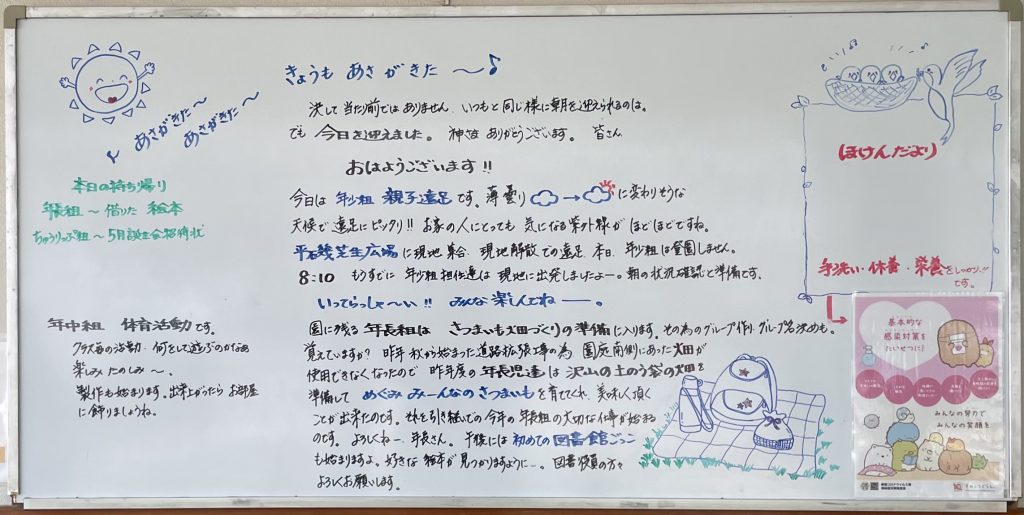 きょうも あさがきた ～♪
あさがきた～
あさがきた～
決して当たり前ではありません、いつもと同じ様に朝を迎えられるのは。
でも 今日を迎えました。 神さま ありがとうございます。 皆さん
おはようございます!!
今日は 年少組 親子遠足です。薄曇り → に変わりそうな
天候で遠足にピッタリ!! お家の人にとっても 気になる紫外線が ほどほどですね。
芝生広場に現地集合、現地解散での遠足、本日、年少組は登園しません。
8:10 もうすでに 年少組担任達は 現地に出発しましたよー。朝の状況確認と準備です。
いってらっしゃ～い!! みんな楽しんでねー。
園に残る 年長組は さつまいも畑づくりの準備に入ります。その為のグループ作り、グループ名決めも。
覚えていますか? 昨年秋から始まった道路拡張工事の為 園庭南側にあった畑が
使用できなくなったので 昨年度の年長児達は 沢山の土のう袋の畑を
準備して めぐみ みーんなのさつまいもを育ててくれ、美味しく頂く
ことが出来たのです。それを引き継いでの今年の年長組の大切な仕事が始まる
のです。 よろしくねー、年長さん。 午後には 初めての図書館ごっこ
も始まりますよ。好きな絵本が見つかりますようにー。図書役員の方々
よろしくお願いします。
本日の持ち帰り
年長組～借りた 絵本
ちゅうりっぷ組～5月誕生会招待状
年中組 体育活動です。
クラス毎の活動、何をして遊ぶのかなぁ
楽しみ たのしみ～、
製作も始まります。出来上がったら お部屋
に飾りましょうね。
ほけんだより
手洗い・休養・栄養をしっかり!!
です。
基本的な
感染対策を
たいせつに!
みんなの努力で
みんなの笑顔を